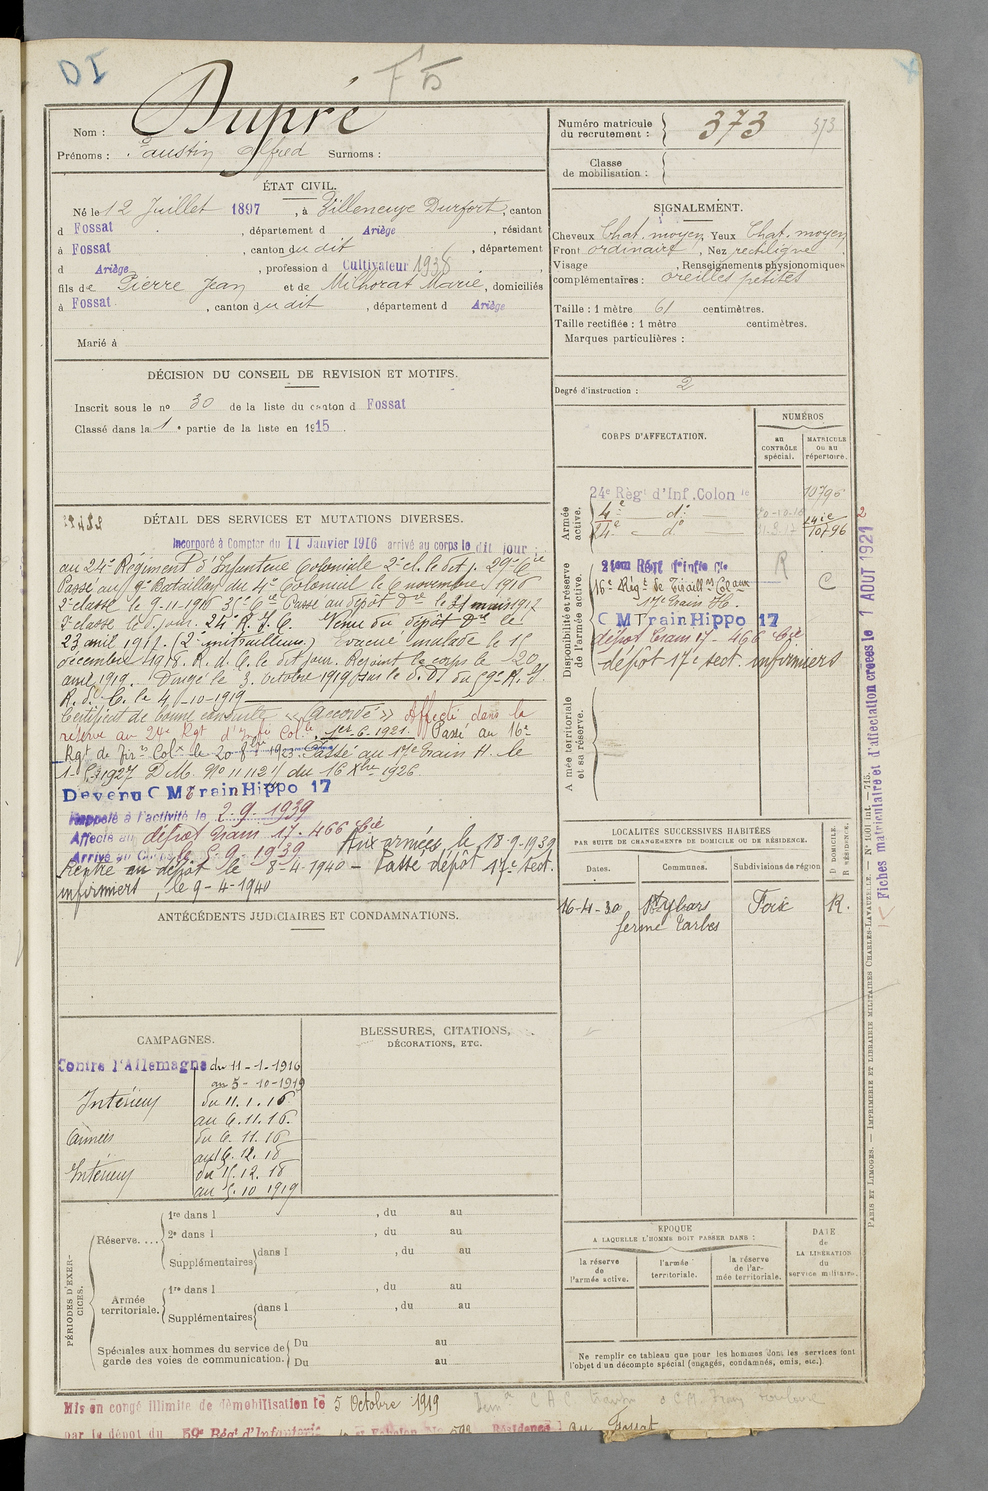 DI
F 5
Nom : Dupré
Prénoms : Faustin Alfred Surnoms :
Numéro matricule du recrutement : 373 373
Classe de mobilisation :
ÉTAT CIVIL.
Né le 12 Juillet 1897, à Villeneuve Durfort, canton
d Fossat, département d Ariège, résidant
à Fossat, canton du dit, département
d Ariège, profession d Cultivateur 1938
fils de Pierre Jean et de Milhorat Marie, domiciliés
à Fossat, canton du dit, département d Ariège
Marié à
SIGNALEMENT.
Cheveux Chat. moyen Yeux Chat. moyen
Front ordinaire, Nez rectiligne
Visage , Renseignements physionomiques
complémentaires : oreilles petites
Taille : 1 mètre 61 centimètres.
Taille rectifiée : 1 mètre centimètres.
Marques particulières :
Degré d'instruction : 2
DÉCISION DU CONSEIL DE REVISION ET MOTIFS.
Inscrit sous le nº 30 de la liste du canton d Fossat
Classé dans la 1 e partie de la liste en 1915.
DÉTAIL DES SERVICES ET MUTATIONS DIVERSES.
Incorporé à Compter du 11 Janvier 1916 arrivé au corps le dit jour
au 24e Régiment d'Infanterie Coloniale 2e cl. le dit j. 29e Cie
Passé au 9e Bataillon du 4e Colonial le 6 novembre 1916
2e classe le 9-11-1916 35e Cie Passé au dépôt du 4e le 31 mars 1917
2e classe le d. jour. 24e R. I. C. Venu du dépôt du le
23 avril 1917. (2e mitrailleur) Evacué malade le 15
décembre 1918. R. d. C. le dit jour. Rejoint le corps le 20
avril 1919. Dirigé le 3. Octobre 1919 sur le D. D. du 59e R. I.
R. d. C. le 4-10-1919
Certificat de bonne conduite "Accordé" Affecté dans la
réserve au 24e Rgt d'Infie Colle, 1er-6-1921. Passé au 16e
Rgt de Tirrs Colx le 20 8bre 1923. Passé au 17e Train H. le
1-5-1927 D.M. Nº 11112 1/1 du 16 Xbre 1926.
Devenu C M Train Hippo 17
Rappelé à l'activité le 2.9.1939
Affecté au dépôt train 17. 466 Cie
Arrivé au Corps le 5.9.1939 Aux armées le 18-9-1939
Rentré au dépôt le 8-4-1940 - Passé dépôt 17e sect.
infirmiers, le 9-4-1940
CORPS D'AFFECTATION.
NUMÉROS
au CONTRÔLE spécial.
MATRICULE ou au répertoire.
Armée active.
24e Règt d'Inf. Colon le 10796
4e do
24e do 10796
Disponibilité et réserve de l'armée active.
21em Régt d'Infie Cle R
16e Régt de Tiraillrs Colaux C
17e Train H.
C M Train Hippo 17
dépôt train 17 - 466 Cie
dépôt 17e sect. infirmiers
Armée territoriale et sa réserve.
ANTÉCÉDENTS JUDICIAIRES ET CONDAMNATIONS.
LOCALITÉS SUCCESSIVES HABITÉES
PAR SUITE DE CHANGEMENTS DE DOMICILE OU DE RÉSIDENCE.
Dates. Communes. Subdivisions de région D DOMICILE. R RÉSIDENCE.
16-4-30 St Ybars Foix R.
ferme Tarbes
CAMPAGNES.
Contre l'Allemagne du 11-1-1916
au 5-10-1919
Intérieur du 11.1.16
au 6.11.16.
Armées du 6.11.16
au 16.12.18
Intérieur du 15.12.18
au 5.10 1919
BLESSURES, CITATIONS, DÉCORATIONS, ETC.
PÉRIODES D'EXERCICES.
Réserve....
1re dans l , du au
2e dans l , du au
Supplémentaires dans l , du au
Armée territoriale.
1re dans l , du au
Supplémentaires dans l , du au
Spéciales aux hommes du service de garde des voies de communication.
Du au
Du au
ÉPOQUE
A LAQUELLE L'HOMME DOIT PASSER DANS :
la réserve de l'armée active.
l'armée territoriale.
la réserve de l'armée territoriale.
DATE de LA LIBÉRATION du service militaire.
Ne remplir ce tableau que pour les hommes dont les services font l'objet d'un décompte spécial (engagés, condamnés, omis, etc.).
Mis en congé illimité de démobilisation le 5 Octobre 1919
par le dépôt du 59e Régt d'Infanterie
Résidence au Fossat
Fiches matriculaire et d'affectation créées le 1 AOUT 1921
PARIS ET LIMOGES. — IMPRIMERIE ET LIBRAIRIE MILITAIRES CHARLES-LAVAUZELLE. — Nº 1601 int. — 715.